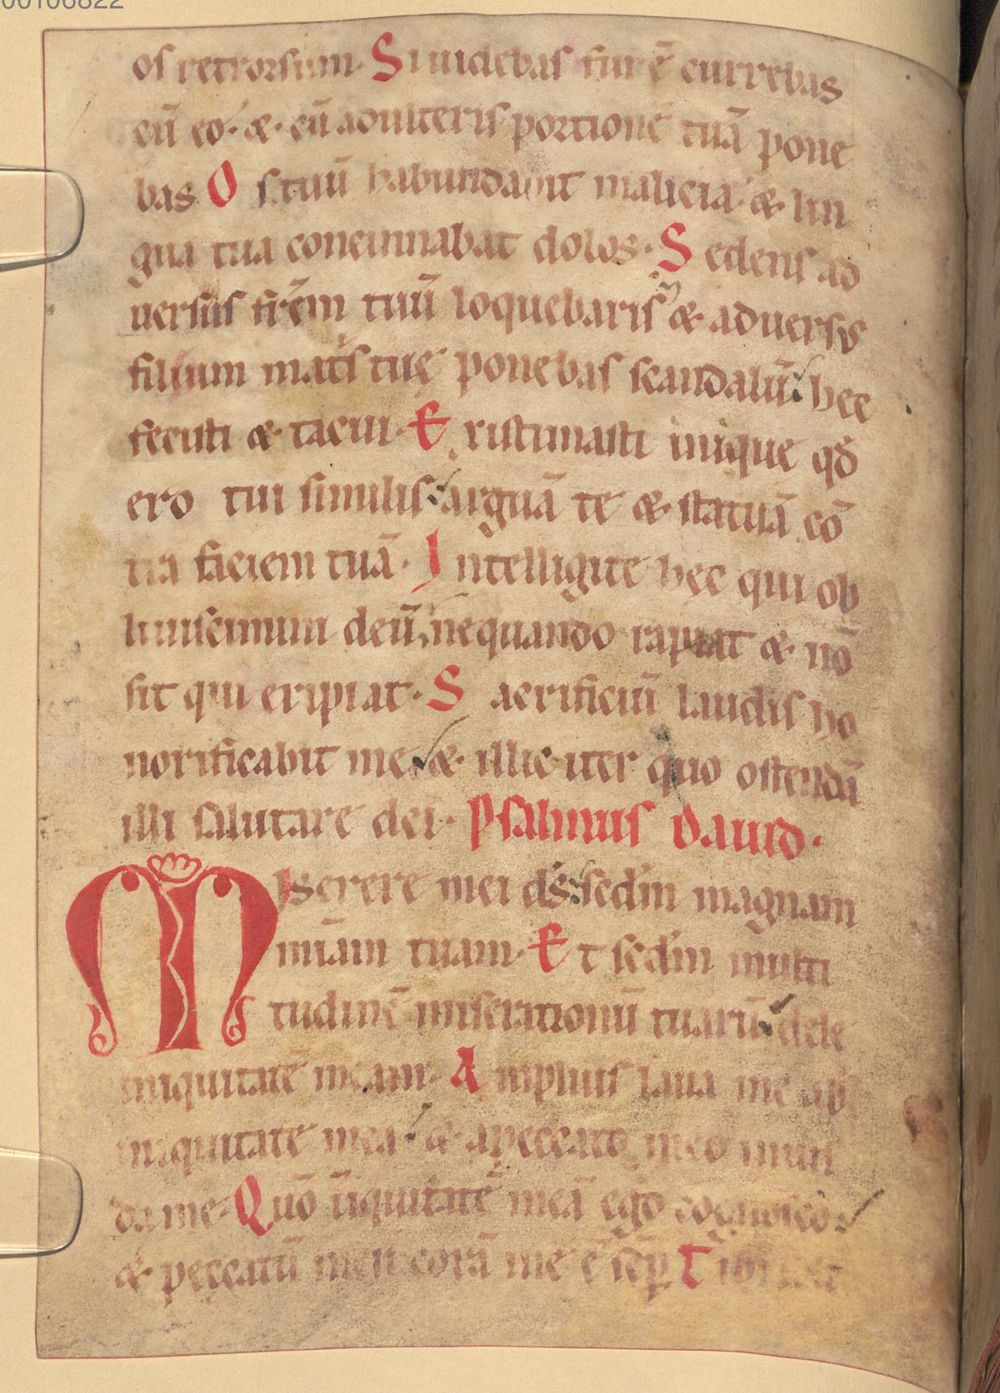 00106822
os retrorsum. Si uidebas furē currebas
cū eo. & cū adulteris portionē tuā pone
bas Os tuū habundauit malicia & lin
gua tua concinnabat dolos. Sedens ad
uersus fr̄em tuū loquebaris & aduersus
filium mat̄s tuę ponebas scandalū: hec
fecisti & tacui. Existimasti inique qđ
ero tui similis arguā te & statuā cō
tra faciem tuā. Intelligite hęc qui ob
liuiscimini deū, nequando rapiat & nō
sit qui eripiat. Sacrificiū laudis ho
norificabit me & illic iter quo ostendā
illi salutare dei. Psalmus Dauid.
Miserere mei ds̄ scđm magnam
mīam tuam. Et scđm multi
tudinē miserationū tuarū dele
iniquitatē meam. Amplius laua me ab
iniquitate mea & a peccato meo mun
da me. Quō iniquitatē meā ego cognosco
& peccatū meū corā me ē sēp Tibi